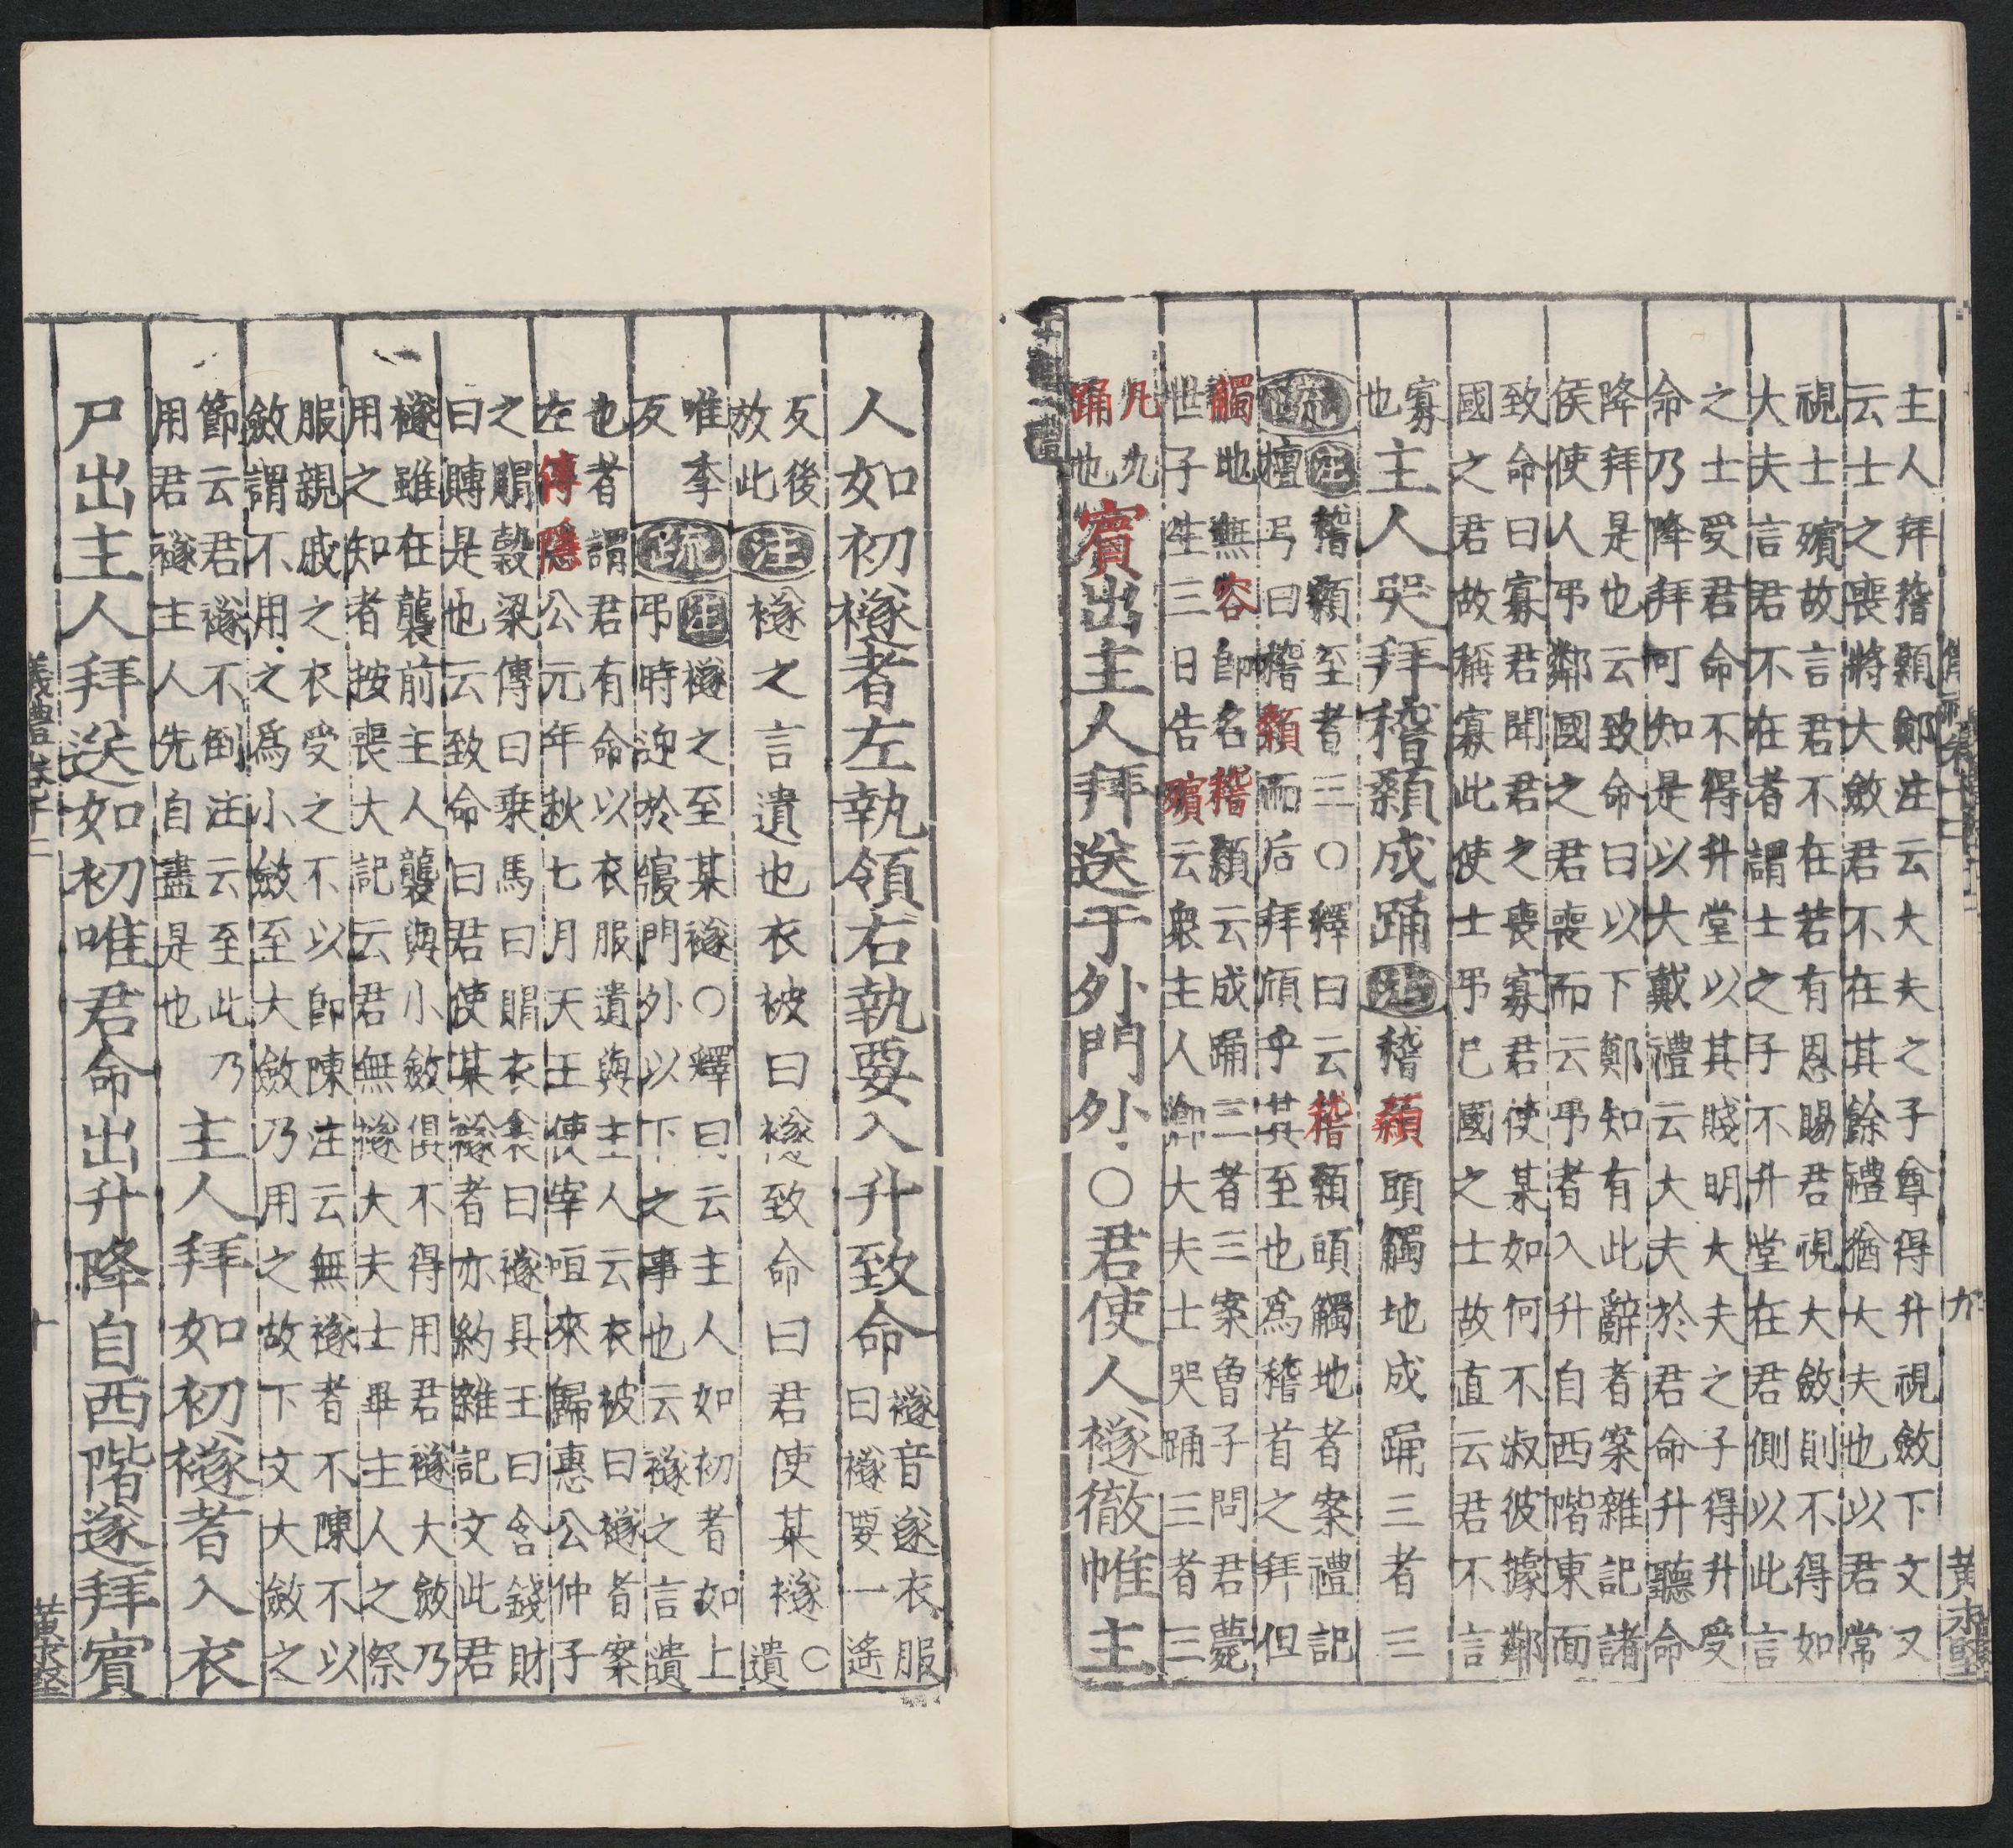 九
黃永堅
主人拜稽顙鄭注云大夫之子尊得升視斂下文又
云士之喪將大斂君不在其餘禮猶大夫也以君常
視士殯故言君不在若有恩賜君視大斂則不得如
大夫言君不在者謂士之子不升堂在君側以此言
之士受君命不得升堂以其賤明大夫之子得升受
命乃降拜可知是以大戴禮云大夫於君命升聽命
降拜是也云致命曰以下鄭知有此辭者案雜記諸
侯使人弔鄰國之君喪而云弔者入升自西階東面
致命曰寡君聞君之喪寡君使某如何不淑彼據鄰
國之君故稱寡此使士弔己國之士故直云君不言
寡
也主人哭拜稽顙成踊注稽顙頭觸地成踊三者三
疏注稽顙至者三○釋曰云稽顙頭觸地者案禮記
檀弓曰稽顙而后拜頎乎其至也爲稽首之拜但
觸地無容即名稽顙云成踊三者三案曾子問君薨
世子生三日告殯云衆主人卿大夫士哭踊三者三
凡九
踊也賓出主人拜送于外門外○君使人襚徹帷主
人如初襚者左執領右執要入升致命襚音遂衣服
曰襚要一遙
反後
放此注襚之言遺也衣被曰襚致命曰君使某襚○
遺
唯季
反疏注襚之至某襚○釋曰云主人如初者如上
弔時迎於寢門外以下之事也云襚之言遺
也者謂君有命以衣服遺與主人云衣被曰襚者案
左傳隱公元年秋七月天王使宰咺來歸惠公仲子
之賵穀梁傳曰乗馬曰賵衣衾曰襚具王曰含錢財
曰賻是也云致命曰君使某襚者亦約雜記文此君
襚雖在襲前主人襲與小斂俱不得用君襚大斂乃
用之知者按喪大記云君無襚大夫士畢主人之祭
服親戚之衣受之不以即陳注云無襚者不陳不以
斂謂不用之爲小斂至大斂乃用之故下文大斂之
節云君襚不倒注云至此乃
用君襚主人先自盡是也主人拜如初襚者入衣
尸出主人拜送如初唯君命出升降自西階遂拜賓
十
黃永堅